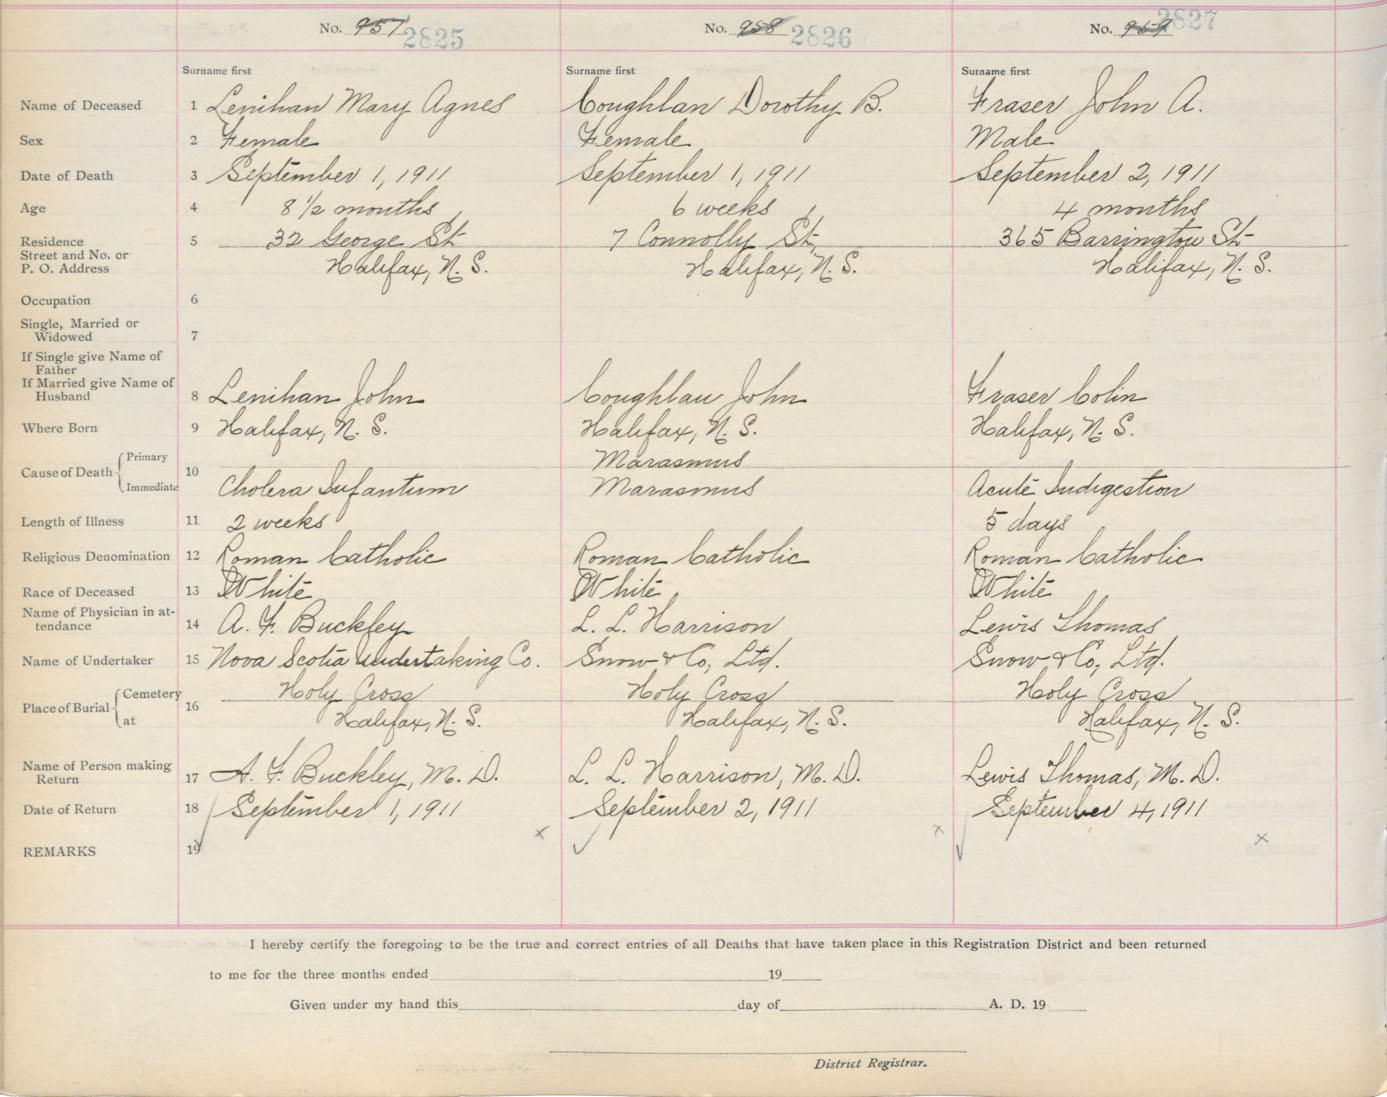 No. 957 2825 No. 958 2826 No. 959 2827
Surname first Surname first Surname first
Name of Deceased 1 Lenihan Mary Agnes Coughlan Dorothy B. Fraser John A.
Sex 2 Female Female Male
Date of Death 3 September 1, 1911 September 1, 1911 September 2, 1911
Age 4 8 1/2 months 6 weeks 4 months
Residence 5 32 George St. 7 Connolly St. 365 Barrington St.
Street and No. or
P. O. Address Halifax, N. S. Halifax, N. S. Halifax, N. S.
Occupation 6
Single, Married or
Widowed 7
If Single give Name of
Father
If Married give Name of
Husband 8 Lenihan John Coughlan John Fraser Colin
Where Born 9 Halifax, N. S. Halifax, N. S. Halifax, N. S.
Cause of Death Primary 10 Marasmus
Immediate Cholera Infantum Marasmus Acute Indigestion
Length of Illness 11 2 weeks 5 days
Religious Denomination 12 Roman Catholic Roman Catholic Roman Catholic
Race of Deceased 13 White White White
Name of Physician in at-
tendance 14 A. F. Buckley L. L. Harrison Lewis Thomas
Name of Undertaker 15 Nova Scotia Undertaking Co. Snow & Co, Ltd. Snow & Co, Ltd.
Place of Burial Cemetery 16 Holy Cross Holy Cross Holy Cross
at Halifax, N. S. Halifax, N. S. Halifax, N. S.
Name of Person making
Return 17 A. F. Buckley, M. D. L. L. Harrison, M. D. Lewis Thomas, M. D.
Date of Return 18 September 1, 1911 September 2, 1911 September 4, 1911
x x x
REMARKS 19
I hereby certify the foregoing to be the true and correct entries of all Deaths that have taken place in this Registration District and been returned
to me for the three months ended 19
Given under my hand this day of A. D. 19
District Registrar.